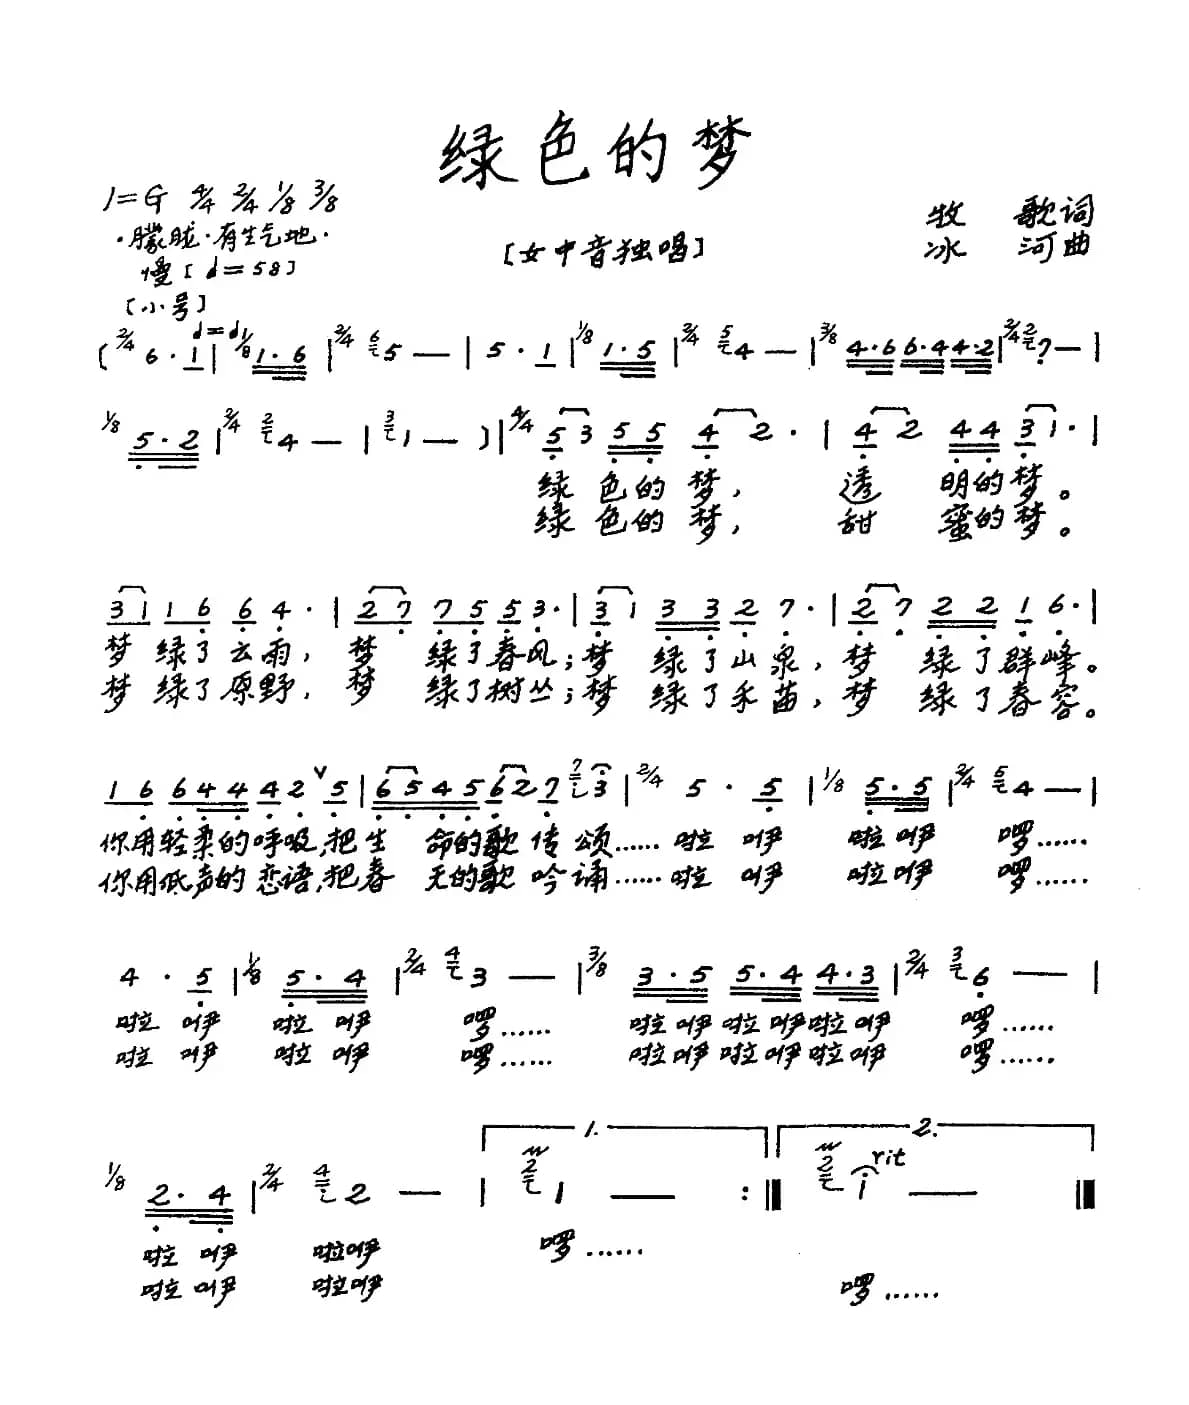 绿色的梦
1=G 4/4 2/4 1/8 3/8
·朦胧·有生气地·
慢[♩=58]
[小号]
[女中音独唱]
牧 歌词
冰 河曲
(2/4 6·1|♩=♩1/8 1·6|2/4 5—|5·1|1/8 1·5|2/4 4—|3/8 4·6 6·4 4·2|2/4 7—|
1/8 5·2|2/4 4—|1—)|4/4 5 3 5 5 4 2·|4 2 4 4 3 1·|
绿 色的 梦, 透 明的梦。
绿 色的 梦, 甜 蜜的梦。
3 1 1 6 6 4·|2 7 7 5 5 3·|3 1 3 3 2 7·|2 7 2 2 1 6·|
梦 绿了云雨, 梦 绿了春风;梦 绿了山泉, 梦 绿了群峰。
梦 绿了原野, 梦 绿了树丛;梦 绿了禾苗, 梦 绿了春容。
1 6 6 4 4 4 2 ∨ 5|6 5 4 5 6 2 7 3|2/4 5·5|1/8 5·5|2/4 4—|
你用轻柔的呼吸,把生 命的歌传颂……啦咿 啦咿 啰……
你用低声的恋语,把春 天的歌吟诵……啦咿 啦咿 啰……
4·5|1/8 5·4|2/4 3—|3/8 3·5 5·4 4·3|2/4 6—|
啦咿 啦咿 啰…… 啦咿啦咿啦咿 啰……
啦咿 啦咿 啰…… 啦咿啦咿啦咿 啰……
1. 2.
1/8 2·4|2/4 2—|1—:‖ rit 1—‖
啦咿 啦咿 啰……
啦咿 啦咿 啰……